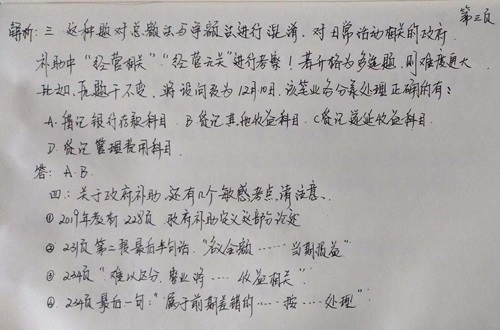 第三页
解析：三、这种题对总额法与净额法进行混淆，对日常活动相关的政府
补助中“经营相关”“经营无关”进行考察！若升格为多选题，则难度更大
比如，原题干不变，将设问改为12月10日，该笔业务分录处理正确的有：
A.借记银行存款科目 B.贷记其他收益科目 C.贷记递延收益科目
D.贷记管理费用科目.
答：A.B.
四：关于政府补助，还有几个敏感考点，请注意、
①2019年教材228页 政府补助定义这部分论述
②231页第二段最后半句话，“名义金额……当期损益”
③234页“难以区分，企业将……收益相关”.
④234页最后一句：“属于前期差错的……按……处理”.